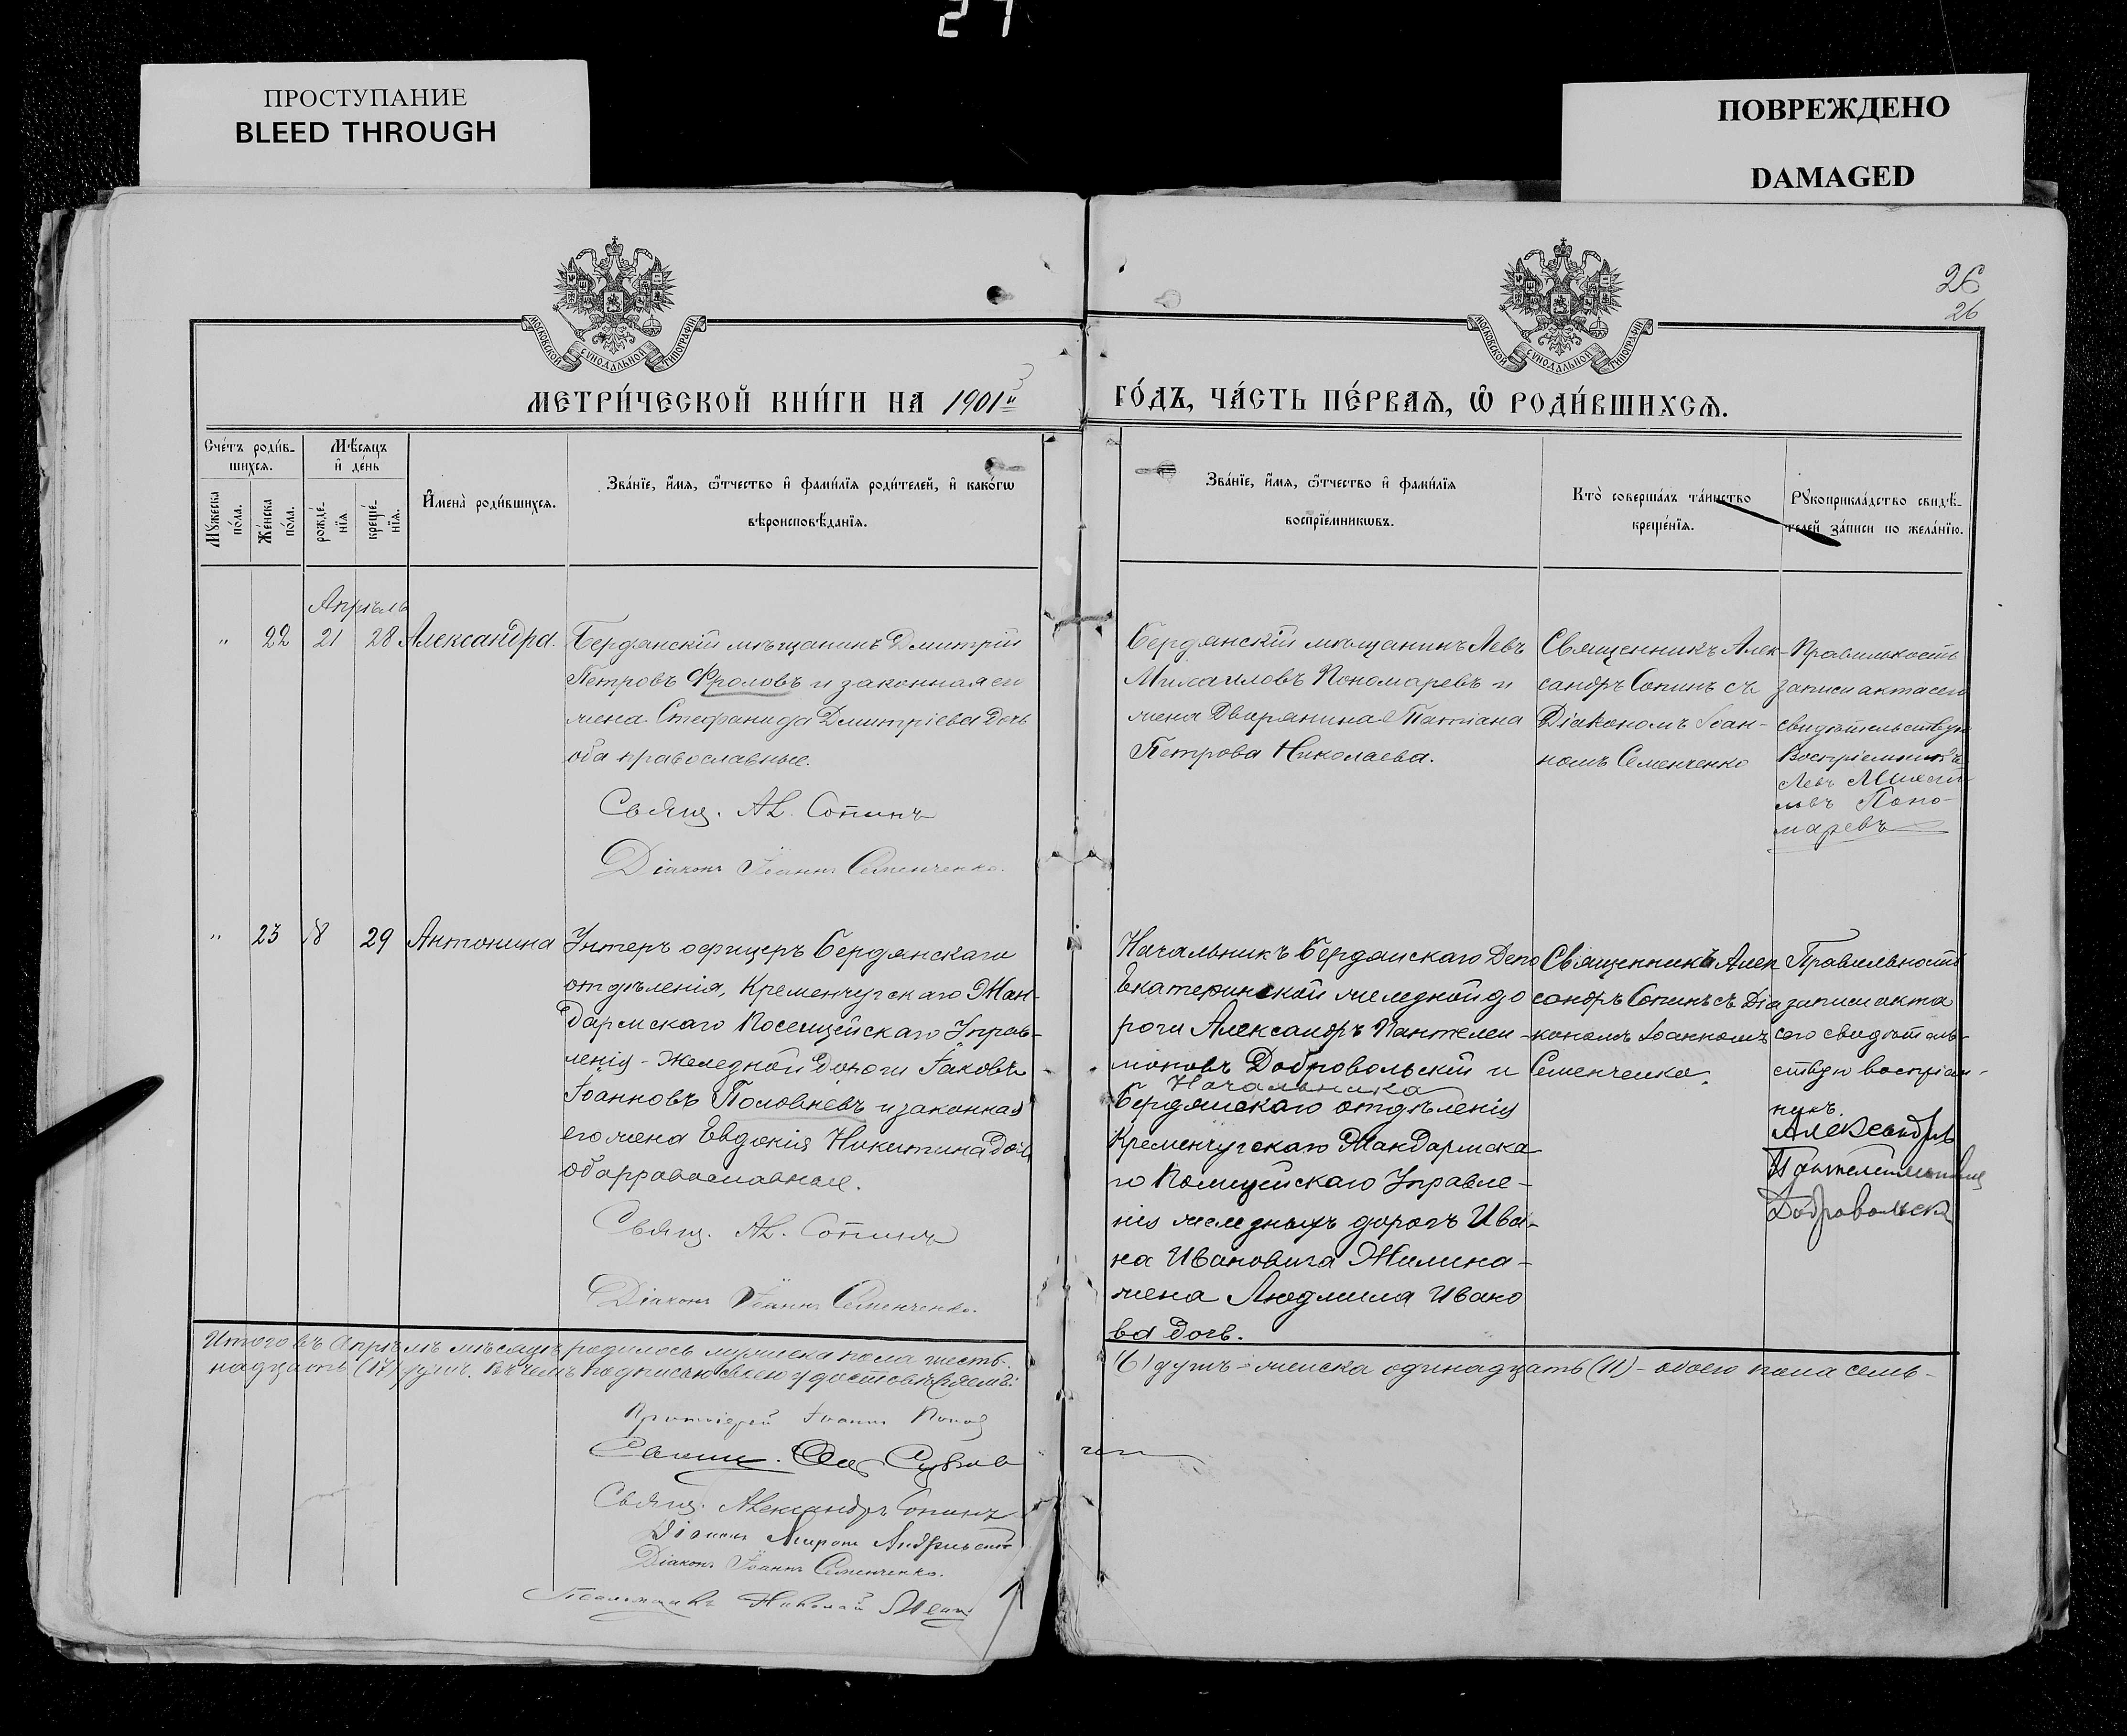 27
ПРОСТУПАНИЕ
BLEED THROUGH
ПОВРЕЖДЕНО
DAMAGED
26
26
МОСКОВСКОЙ СУНОДАЛЬНОЙ ТИПОГРАФІИ
МОСКОВСКОЙ СУНОДАЛЬНОЙ ТИПОГРАФІИ
МЕТРИ́ЧЕСКОЙ КНИ́ГИ НА 1901й
ГО́ДЪ, ЧА́СТЬ ПЕ́РВАѦ, Ѡ҆ РОДИ́ВШИХСѦ.
Сче́тъ роди́в-
шихсѧ.
Мꙋ́жеска по́ла.
Же́нска по́ла.
Мѣ́сѧцъ
и҆ де́нь
рожде́-
нїѧ
креще́-
нїѧ.
И҆мена̀ роди́вшихсѧ.
Зва́нїе, и҆́мѧ, ѻ҆́тчество и҆ фами́лїѧ роди́телей, и҆ како́гѡ
вѣроисповѣ́данїѧ.
Зва́нїе, и҆́мѧ, ѻ҆́тчество и҆ фами́лїѧ
воспрїе́мникѡвъ.
Кто̀ соверша́лъ та́инство
креще́нїѧ.
Рꙋкоприкла́дство свидѣ́-
телей за́писи по жела́нїю.
Апрѣль
" 22 21 28 Александра.
Бердянскій мѣщанинъ Дмитрій
Петровъ Фроловъ и законная его
жена Стефанида Дмитріева дочь
оба православные.
Свящ. Ал. Сопинъ
Діаконъ Іоаннъ Семенченко.
Бердянскій мѣщанинъ Левъ
Михаиловъ Пономаревъ и
жена Дворянина Татіана
Петрова Николаева.
Священникъ Алек-
сандръ Сопинъ съ
Діакономъ Іоан-
номъ Семенченко
Правильность
записи акта сего
свидѣтельствую
Воспріемникъ
Левъ Михаи
ловъ Поно-
маревъ
" 23 18 29 Антонина
Унтеръ офицеръ Бердянскаго
отдѣленія, Кременчугскаго Жан-
дармскаго Полицейскаго Управ-
ленія - Желѣзной Дороги Іаковъ
Іоанновъ Половневъ и законная
его жена Евдокія Никитина дочь
оба православные.
Свящ. Ал. Сопинъ
Діаконъ Іоаннъ Семенченко.
Начальникъ Бердянскаго Депо
Екатерин́ской желѣзной до
роги Александръ Пантелеи-
моновъ Добровольскій и
Начальника
Бердянскаго отдѣленія
Кременчугскаго Жандармска
го Полицейскаго Управле-
нія желѣзныхъ дорогъ Ива-
на Ивановича Жилина-
жена Людмила Ивано
ва дочь.
Священникъ Алек
сандръ Сопинъ съ Діа
кономъ Іоанномъ
Семенченко.
Правильность
записи акта
сего свидѣтель-
ствую воспріем-
никъ.
Александръ
Пантелеимоновъ
Добровольскій
Итого въ Апрѣлѣ мѣсяцѣ родилось мужска пола шесть-
(6) душъ - женска одинадцать (11) - обоего пола семь-
надцать (17) душъ. Въ чемъ подписью своею удостовѣряемъ:
Протоіерей Іоаннъ Попов
Свящ. Александръ Сопинъ
Діаконъ Миронъ
Діаконъ Іоаннъ Семенченко.
Псаломщикъ Николай